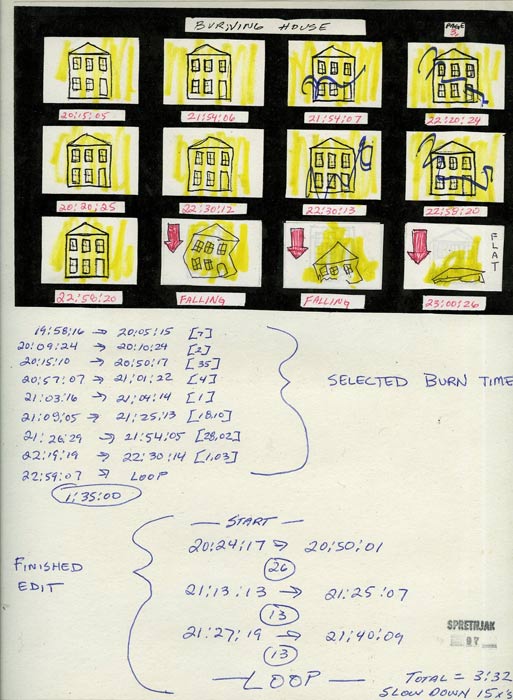 BURNING HOUSE
PAGE
3
20:15:05
21:54:06
21:54:07
22:20:24
20:20:25
22:30:12
22:30:13
22:58:20
22:58:20
FALLING
FALLING
23:00:26
FLAT
19:58:16 → 20:05:15 [7]
20:09:24 → 20:10:24 [2]
20:15:10 → 20:50:17 [35]
20:57:07 → 21:01:22 [4]
21:03:16 → 21:04:14 [1]
21:09:05 → 21:25:13 [18,10]
21:26:29 → 21:54:05 [28,02]
22:19:19 → 22:30:14 [1,03]
22:59:07 → LOOP
1:35:00
SELECTED BURN TIME
FINISHED
EDIT
— START —
20:24:17 → 20:50:01
26
21:13:13 → 21:25:07
13
21:27:19 → 21:40:09
13
— LOOP —
SPRETNJAK
97
TOTAL = 3:32
SLOW DOWN 15X'S